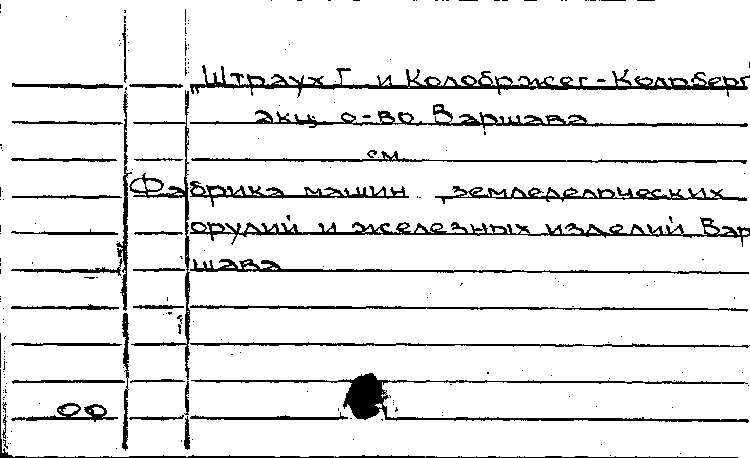 Штраух Г. и Колобржег-Кольберг
акц. о-во. Варшава
см.
Фабрика машин земледельческих
орудий и железных изделий Вар
шава
00